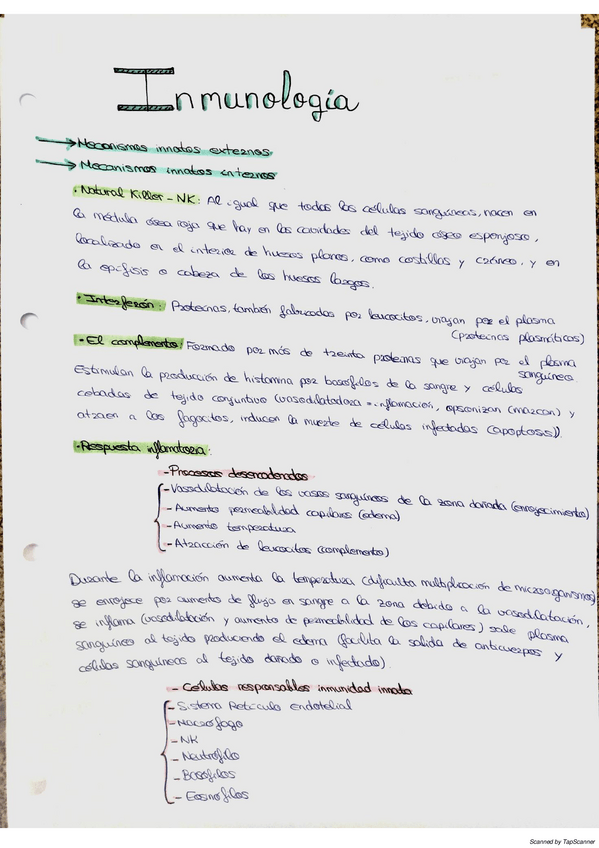 Inmunología
→ Mecanismos innatos externos
→ Mecanismos innatos internos
· Natural Killer - NK: Al igual que todas las células sanguíneas, nacen en
la médula ósea roja que hay en las cavidades del tejido óseo esponjoso,
localizado en el interior de huesos planos, como costillas y cráneo, y en
la epífisis o cabeza de los huesos largos.
· Interferón: Proteínas, también fabricadas por leucocitos, viajan por el plasma
(proteínas plasmáticas)
· El complemento: Formado por más de treinta proteínas que viajan por el plasma
sanguíneo.
Estimulan la producción de histamina por basófilos de la sangre y células
cebadas de tejido conjuntivo (vasodilatadora = inflamación, opsonizan (marcan) y
atraen a los fagocitos, inducen la muerte de células infectadas (apoptosis)).
· Respuesta inflamatoria:
- Procesos desencadenados
- Vasodilatación de los vasos sanguíneos de la zona dañada (enrojecimiento)
- Aumento permeabilidad capilares (edema)
- Aumento temperatura
- Atracción de leucocitos (complemento)
Durante la inflamación aumenta la temperatura (dificulta multiplicación de microorganismos)
se enrojece por aumento de flujo en sangre a la zona debido a la vasodilatación,
se inflama (vasodilatación y aumento de permeabilidad de los capilares) sale plasma
sanguíneo al tejido produciendo el edema (facilita la salida de anticuerpos y
células sanguíneas al tejido dañado o infectado).
- Células responsables inmunidad innata
- Sistema Retículo endotelial
- Macrófago
- NK
- Neutrófilo
- Basófilos
- Eosinófilos
Scanned by TapScanner